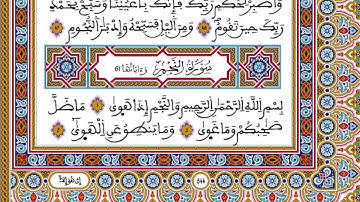 وَاصْبِرْ لِحُكْمِ رَبِّكَ فَإِنَّكَ بِأَعْيُنِنَا وَسَبِّحْ بِحَمْدِ
رَبِّكَ حِينَ تَقُومُ وَمِنَ الَّيْلِ فَسَبِّحْهُ وَإِدْبَارَ النُّجُومِ
سُورَةُ النَّجْمِ
بِسْمِ اللَّهِ الرَّحْمَٰنِ الرَّحِيمِ وَالنَّجْمِ إِذَا هَوَىٰ مَا ضَلَّ
صَاحِبُكُمْ وَمَا غَوَىٰ وَمَا يَنطِقُ عَنِ الْهَوَىٰ
إِنْ هُوَ إِلَّا